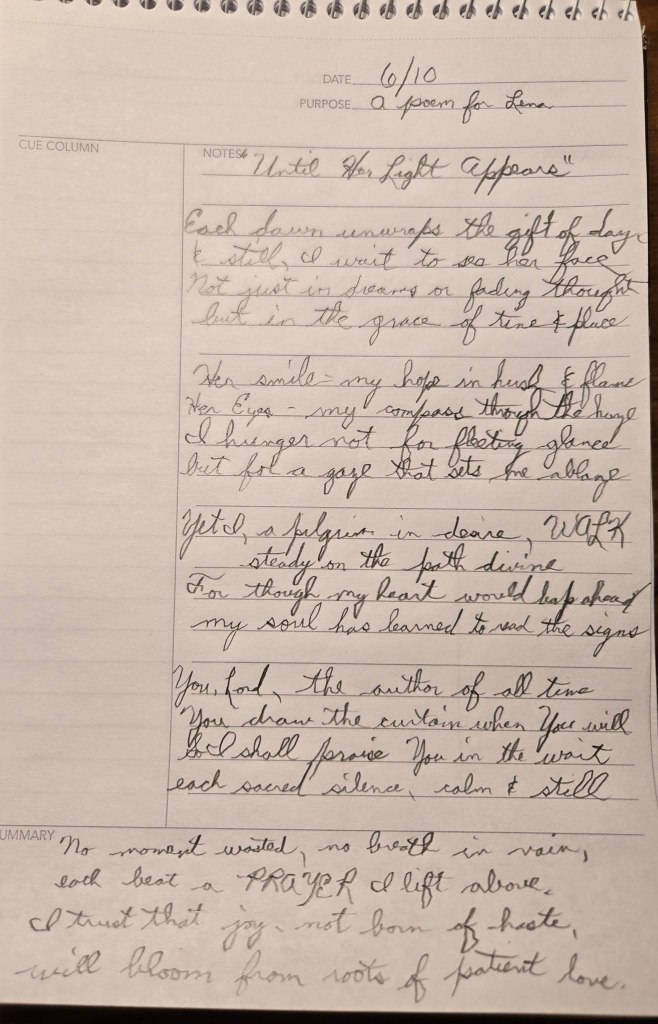 DATE 6/10
PURPOSE a poem for Lena
CUE COLUMN
NOTES "Until Her Light Appears"
Each dawn unwraps the gift of day
& still, I wait to see her face
Not just in dreams or fading thought
but in the grace of time & place
Her smile - my hope in hush & flame
Her Eyes - my compass through the haze
I hunger not for fleeting glance
but for a gaze that sets me ablaze
Yet I, a pilgrim in desire, WALK
steady on the path divine
For though my heart would leap ahead
my soul has learned to read the signs
You, Lord, the author of all time
You draw the curtain when You will
So I shall praise You in the wait
each sacred silence, calm & still
UMMARY No moment wasted, no breath in vain,
each beat a PRAYER I lift above.
I trust that joy, not born of haste,
will bloom from roots of patient love.